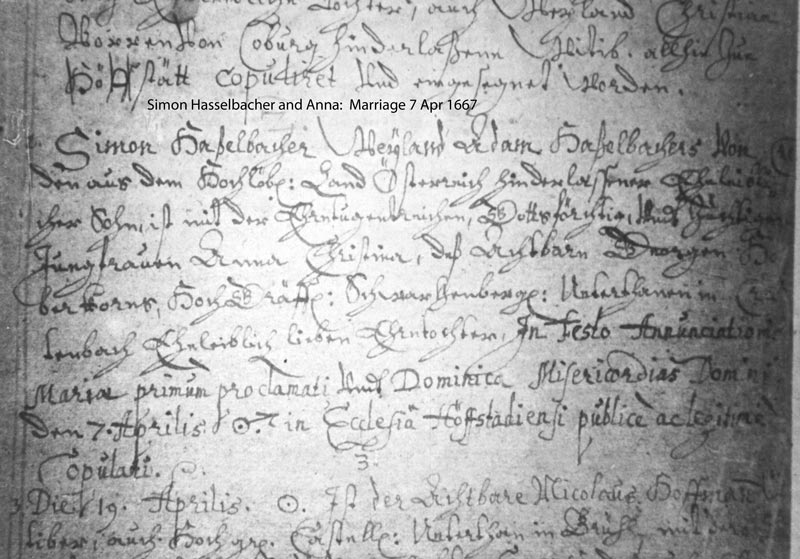 Tochter, auch Weyland Christina
von Coburg hinderlaßene Witib. allhie zue
Höffstätt copuliret und eingesegnet worden.
Simon Hasselbacher and Anna: Marriage 7 Apr 1667
Simon Haßelbacher Weyland Adam Haßelbachers von
den aus dem Hochlöbl: Land Österreich hinderlassener Eheleibli-
cher Sohn, ist mit der Ehrntugentreichen, Gottsförchtig, und züchtigen
Jungfrauen Anna Christina, deß Achtbarn Georgen
berkorns, HochGräffl: Schwarzenbergl: Unterthanen in
tenbach Eheleiblich lieben Ehrntochter, In Festo Annunciation
Mariæ primùm proclamati und Dominica Misericordias Domini
den 7. Aprilis ☉. in Ecclesiâ Höffstadiensi publice ac legitimè
Copulati.
3.
3 Die 19. Aprilis. ☉. Ist der Achtbare Nicolaus Hoffman
auch Hochgr. Castell: Unterthan in mit der